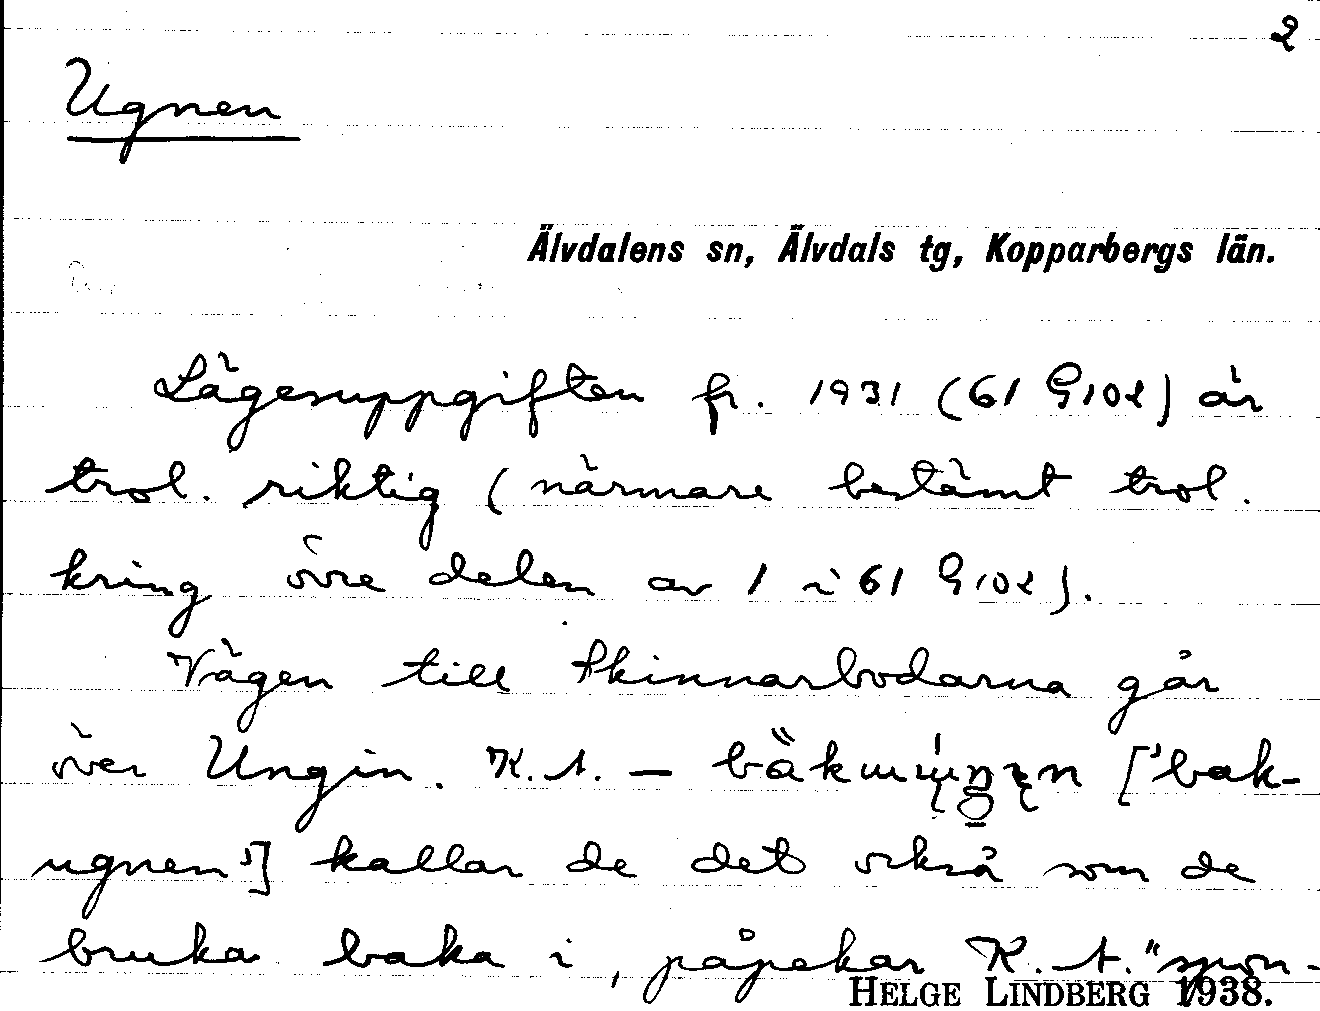 2
Ugnen
Älvdalens sn, Älvdals tg, Kopparbergs län.
Lägesuppgiften fr. 1931 (61 G102) är
trol. riktig (närmare bestämt trol.
kring övre delen av 1 i 61 G102).
Vägen till Skinnarbodarna går
över Ungin. K.A. — ['bak-
ugnen'] kallar de det också som de
bruka baka i, påpekar K.A. "spon-
HELGE LINDBERG 1938.